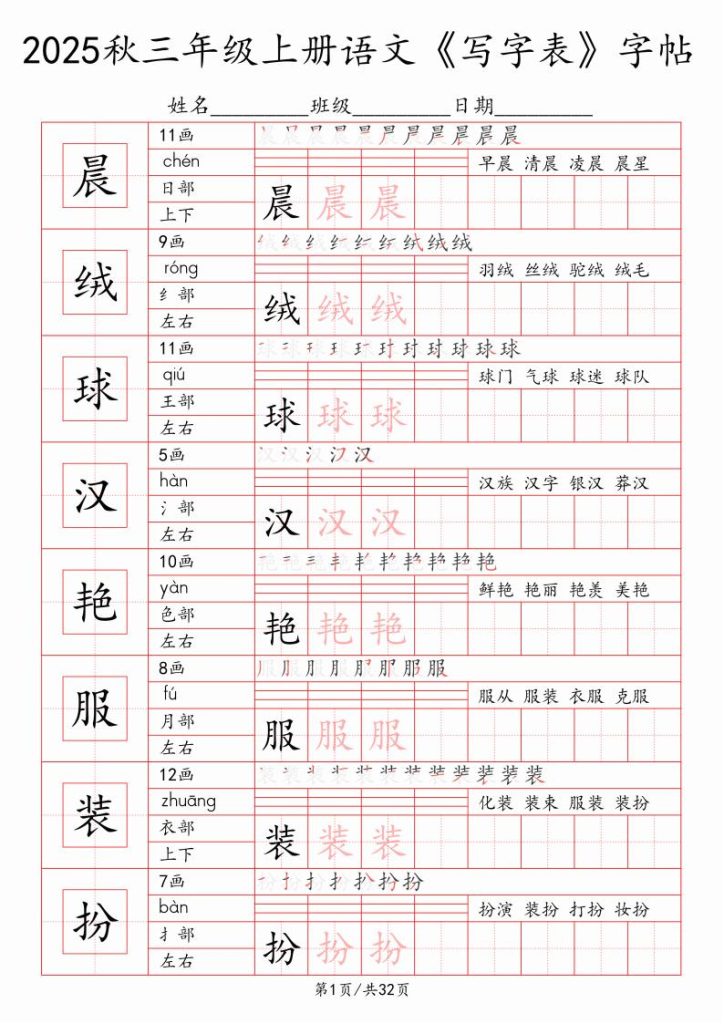 2025秋三年级上册语文《写字表》字帖
姓名________班级________日期________
晨
11画
chén
早晨 清晨 凌晨 晨星
日部
上下
晨 晨 晨
绒
9画
róng
羽绒 丝绒 驼绒 绒毛
纟部
左右
绒 绒 绒
球
11画
qiú
球门 气球 球迷 球队
王部
左右
球 球 球
汉
5画
hàn
汉族 汉字 银汉 莽汉
氵部
左右
汉 汉 汉
艳
10画
yàn
鲜艳 艳丽 艳羡 美艳
色部
左右
艳 艳 艳
服
8画
fú
服从 服装 衣服 克服
月部
左右
服 服 服
装
12画
zhuāng
化装 装束 服装 装扮
衣部
上下
装 装 装
扮
7画
bàn
扮演 装扮 打扮 妆扮
扌部
左右
扮 扮 扮
第1页/共32页